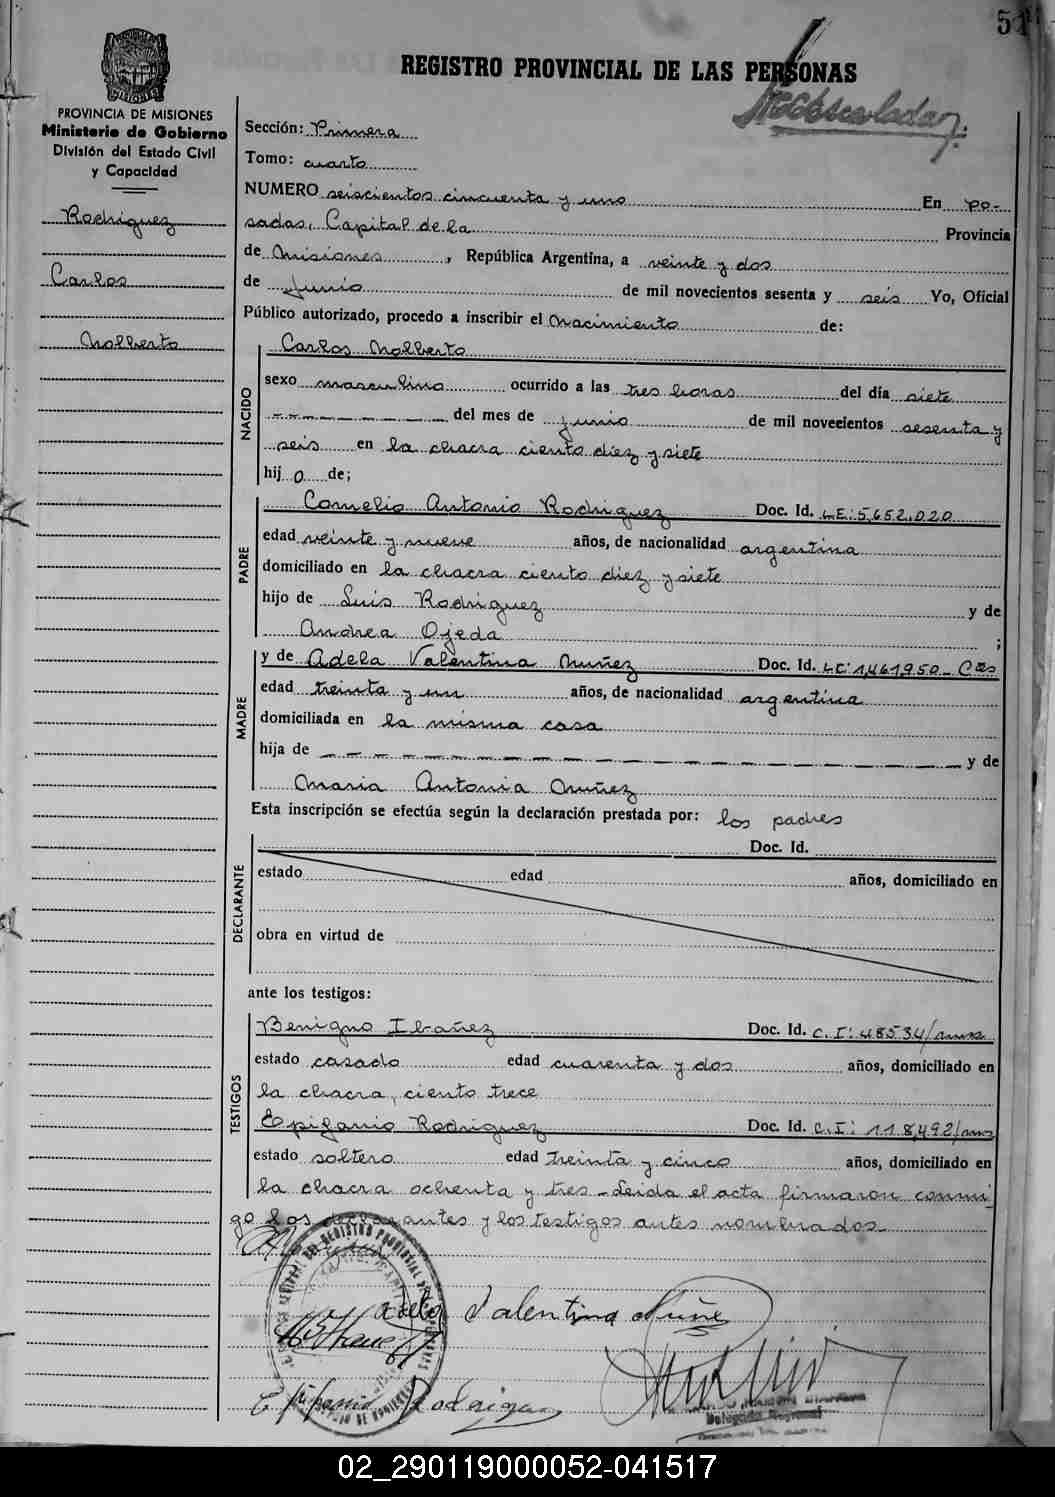 51
REGISTRO PROVINCIAL DE LAS PERSONAS
PROVINCIA DE MISIONES
Ministerio de Gobierno
División del Estado Civil
y Capacidad
Rodriguez
Carlos
Nolberto
Sección: Primera
Tomo: cuarto
NUMERO seiscientos cincuenta y uno En Po-
sadas, Capital de la Provincia
de Misiones, República Argentina, a veinte y dos
de Junio de mil novecientos sesenta y seis Yo, Oficial
Público autorizado, procedo a inscribir el Nacimiento de:
NACIDO
Carlos Nolberto
sexo masculino ocurrido a las tres horas del día siete
del mes de junio de mil novecientos sesenta y
seis en la chacra ciento diez y siete
hijo de;
PADRE
Cornelio Antonio Rodriguez Doc. Id. L.E: 5,652.020
edad veinte y nueve años, de nacionalidad argentina
domiciliado en la chacra ciento diez y siete
hijo de Luis Rodriguez y de
Andrea Ojeda ;
MADRE
y de Adela Valentina Nuñez Doc. Id. LC: 1,461,950 - Ctes
edad treinta y un años, de nacionalidad argentina
domiciliada en la misma casa
hija de y de
Maria Antonia Nuñez
Esta inscripción se efectúa según la declaración prestada por: los padres
DECLARANTE
Doc. Id.
estado edad años, domiciliado en
obra en virtud de
ante los testigos:
TESTIGOS
Benigno Ibañez Doc. Id. C.I: 48534/mnes
estado casado edad cuarenta y dos años, domiciliado en
la chacra, ciento trece
Epifanio Rodriguez Doc. Id. C.I: 118,492/mns
estado soltero edad treinta y cinco años, domiciliado en
la chacra ochenta y tres - Leida el acta firmaron conmi-
go los declarantes y los testigos antes nombrados
adela Valentina Nuñe
Epifanio Rodriguez
Delegado Regional
02_290119000052-041517